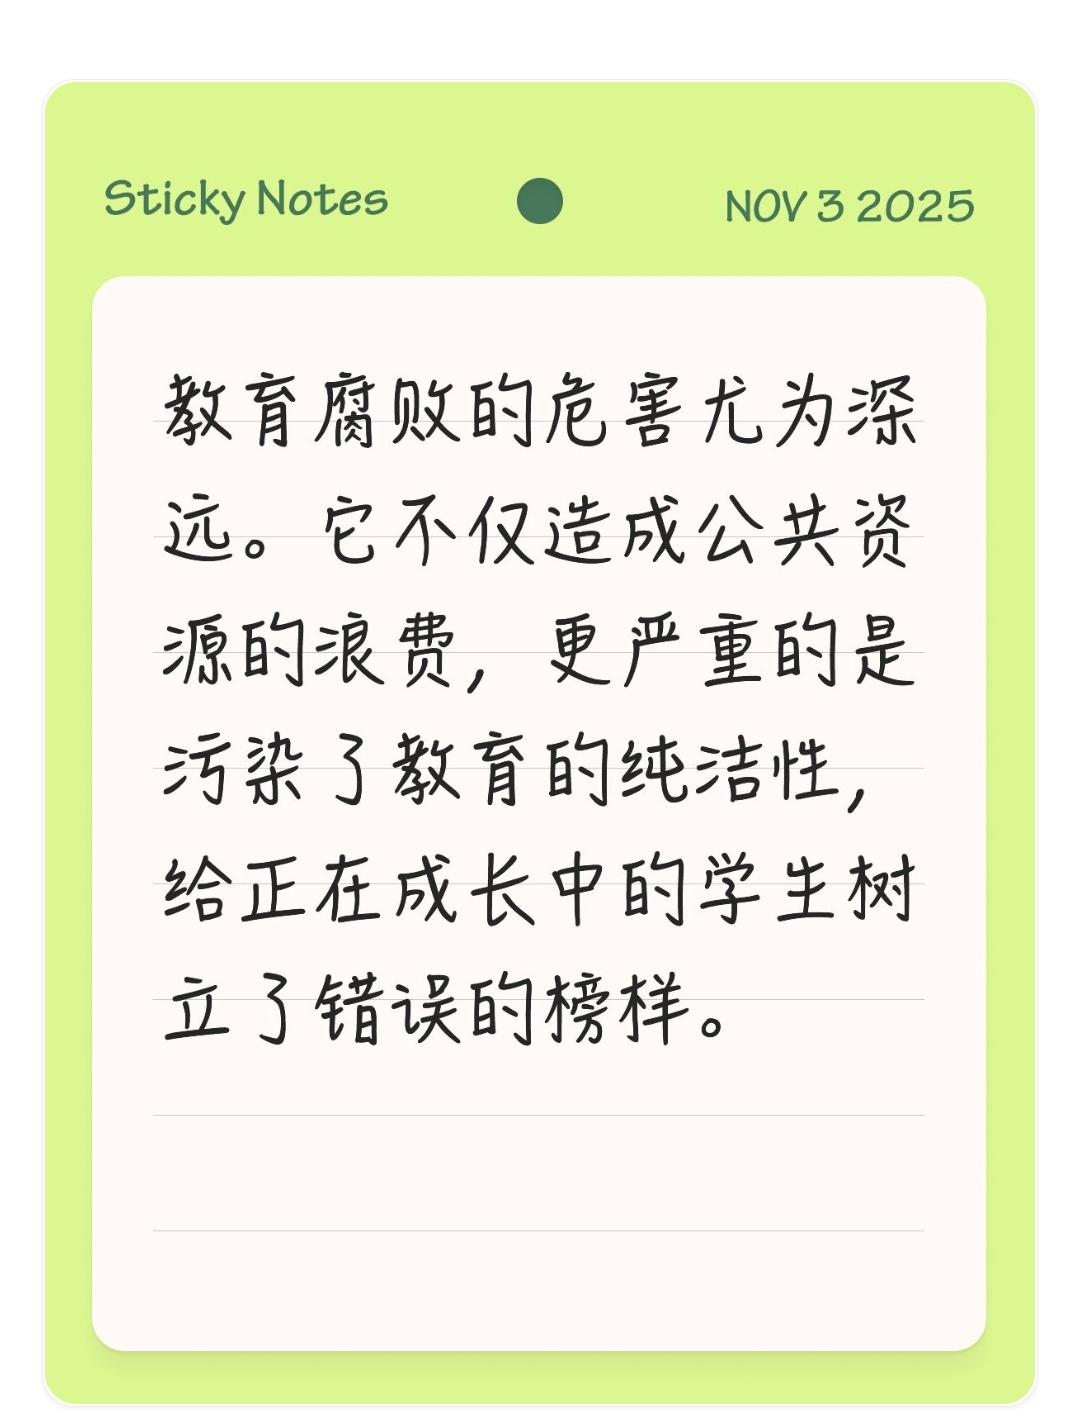 Sticky Notes
NOV 3 2025
教育腐败的危害尤为深
远。它不仅造成公共资
源的浪费，更严重的是
污染了教育的纯洁性，
给正在成长中的学生树
立了错误的榜样。